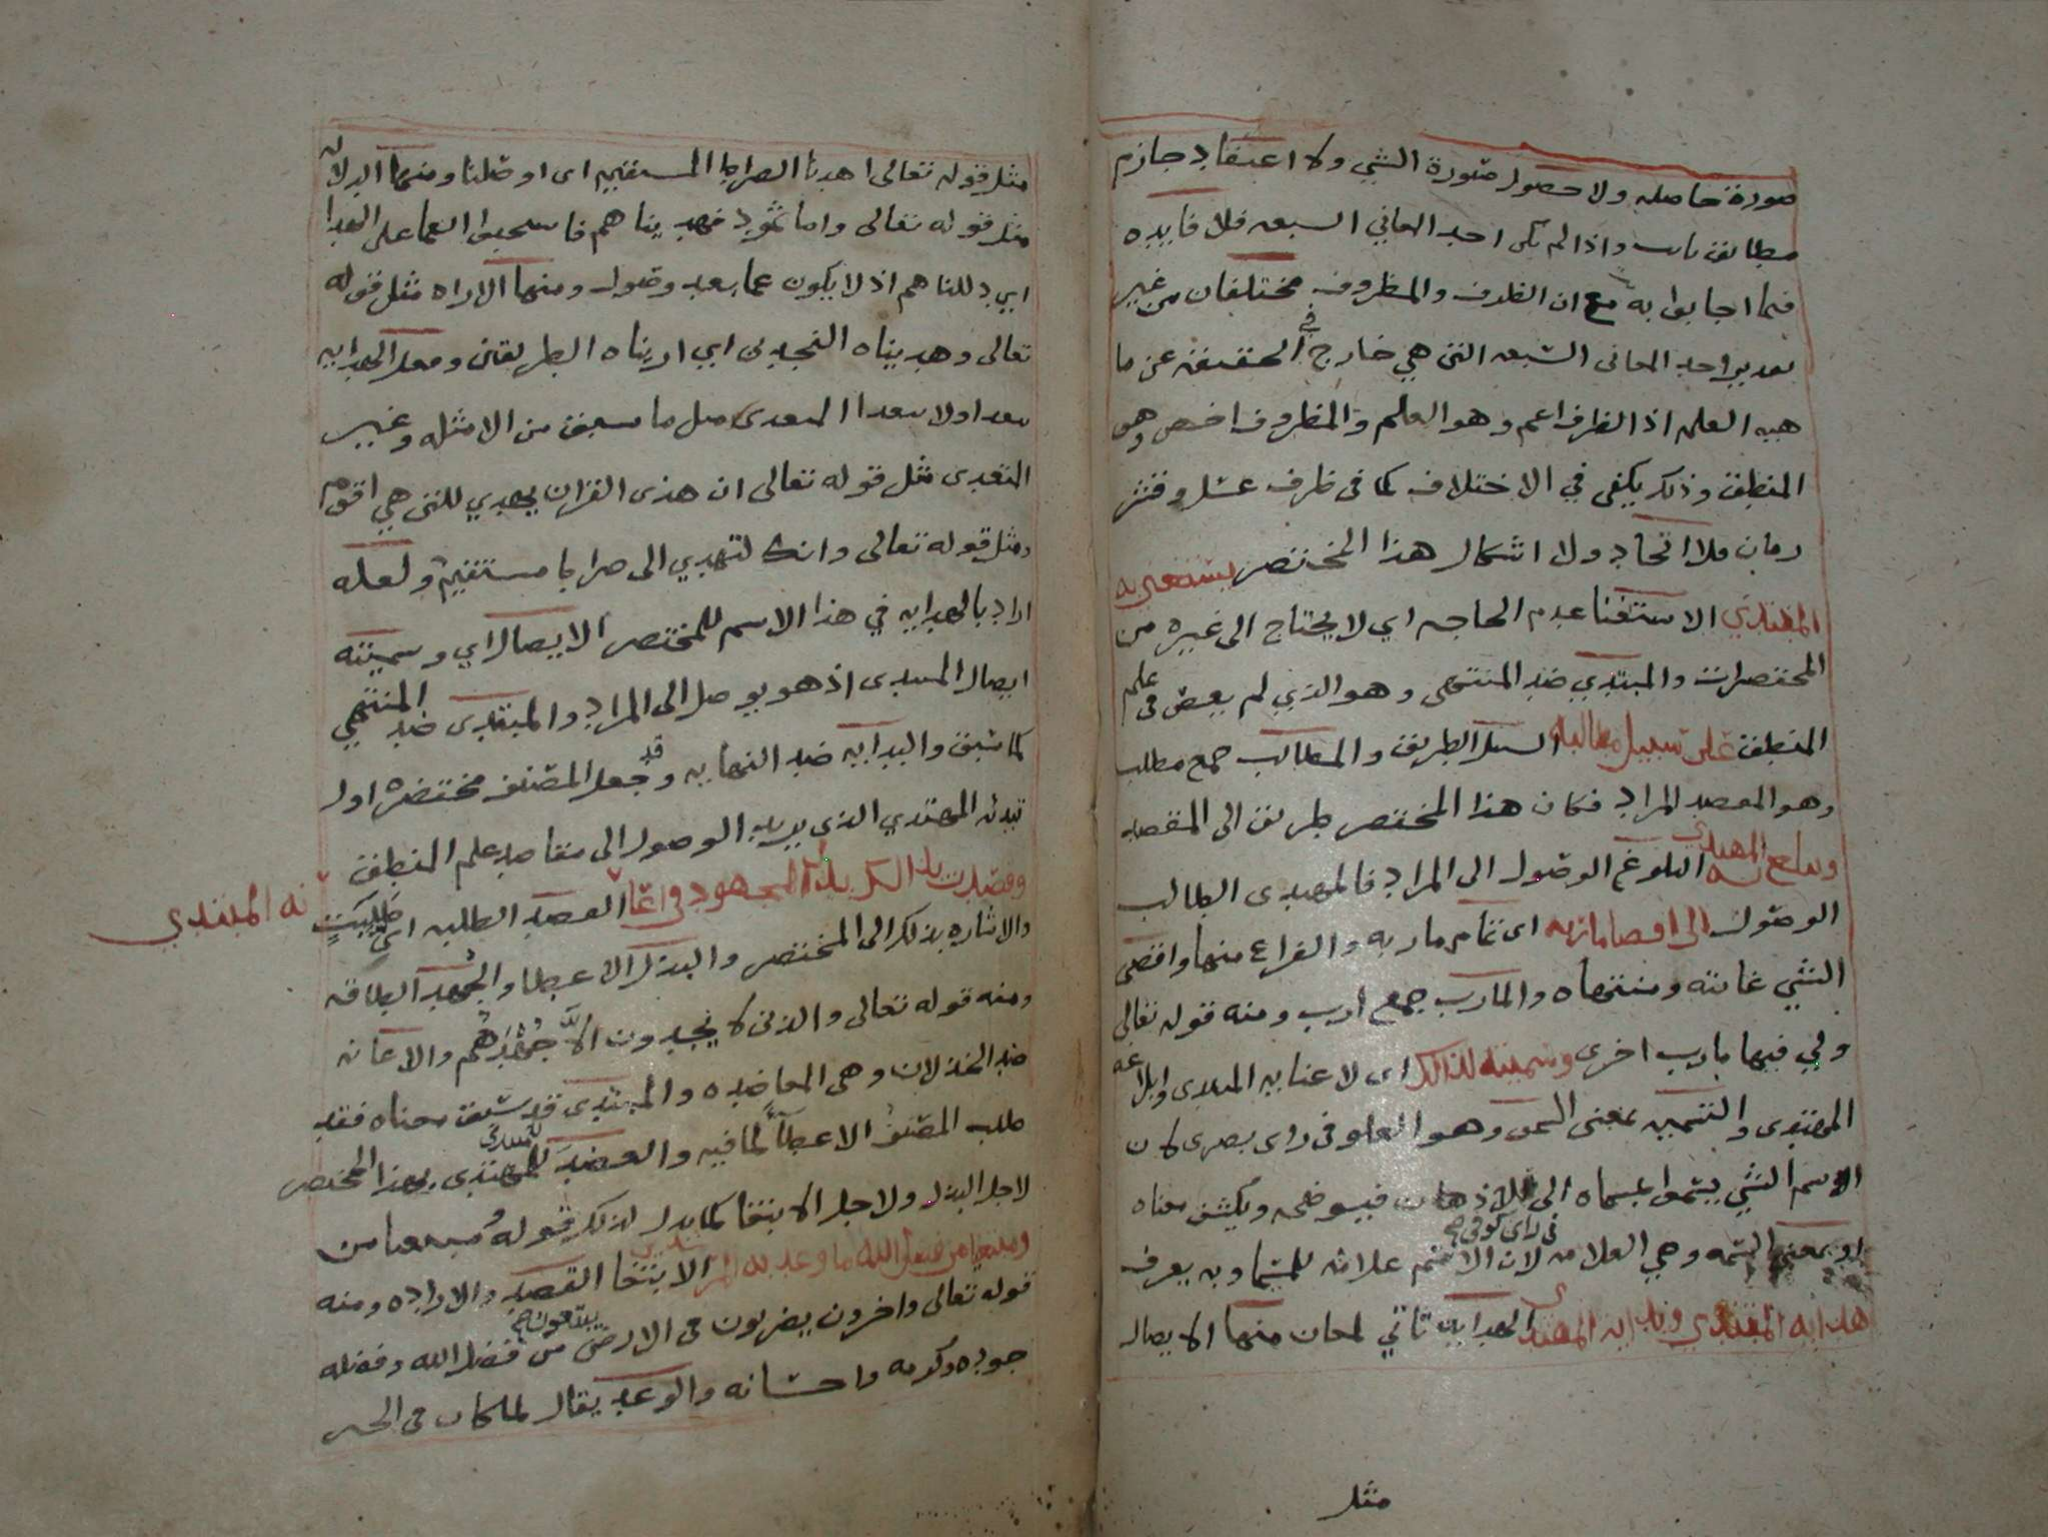 صورة حاصله ولا حصول صورة الشي ولا اعتقاد جازم
مطابق ثابت واذا لم تكن احد المعاني السبعه فلا فايده
فيما اجابوا به مع ان الظرف والمظروف مختلفان من غير
تقدير احد المعانى السبعه التى هي خارج في الحقيقه عن ما
هيه العلم اذ الظرف اعم وهو العلم والمظروف اخص وهو
المنطق وذلك يكفى في الاختلاف كما فى ظرف عسل وقشر
رمان فلا اتحاد ولا اشكال هذا المختصر يستغنى به
المبتدي الاستغنا عدم الحاجه اي لا يحتاج الى غيره من
المختصرات والمبتدي ضد المنتهى وهو الذي لم يعض فى علم
المنطق على سبيل مطالبه السبيل الطريق والمطالب جمع مطلب
وهو المقصد المراد فكان هذا المختصر طريق الى المقصد
ويبلغ به المهتدي البلوغ الوصول الى المراد فالمهتدى الطالب
الوصول الى اقصا ماربه اى تمام ماربه والفراغ منها واقصى
الشي غايته ومنتهاه والمارب جمع ارب ومنه قوله تعالى
ولي فيها مارب اخرى وسميته لذلك اى لاغنايه المبتدى وابلاغه
المهتدى والتسميه بمعنى السمو وهو العلو فى راى بصرى لان
الاسم الشي يسموا بمسماه الى الاذهان فيوضحه ويكشف معناه
او بمعنى السمه وهي العلامه فى راى كوفى لان الاسم علامه للمسما وبه يعرف
هدايه المبتدي وبدايه المهتدي الهدايه تاتي لمعان منها الايصال
مثل
مثل قوله تعالى اهدنا الصراط المستقيم اى اوصلنا ومنها الدلاله
مثل قوله تعالى واما ثمود فهديناهم فاستحبوا العما على الهدا
اي دللناهم اذ لا يكون عما بعد وصول ومنها الاراه مثل قوله
تعالى وهديناه النجدين اي اريناه الطريقين وفعل الهدايه
متعد اولا متعدا المتعدى مثل ما سبق من الامثله وغير
المتعدى مثل قوله تعالى ان هذى القران يهدي للتى هي اقوم
ومثل قوله تعالى وانك لتهدي الى صراط مستقيم ولعله
اراد بالهدايه في هذا الاسم للمختصر الايصال اي وسميته
ايصال المبتدى اذ هو يوصل الى المراد والمبتدى ضد المنتهي
كما سبق والبدايه ضد النهايه وقد جعل المصنف مختصره اول
تبدئه المهتدي الذي يريد الوصول الى مقاصد علم المنطق
وقصدت بذلك بذل المجهود فى اعا القصد الطلبه اى طلبت
نه المبتدي
والاشاره بذلك الى المختصر والبذل الاعطا والجهد الطاقه
ومنه قوله تعالى والذين لا يجدون الا جهدهم والاعانه
ضد الخذلان وهى المعاضده والمبتدى قد سبق معناه فقد
طلب المصنف الاعطا لما فيه والعضد للمبتدي للمهتدى بهذا المختصر
لاجل البذل ولاجل الابتغا كما يدل لذلك قوله مبتغيا من
ومبتغيا من فضل الله ما وعد به الابتغا القصد والاراده ومنه
قوله تعالى واخرون يضربون فى الارض يبتغون من فضل الله وفضله
جوده وكرمه واحسانه والوعد يقال لما كان فى الخير